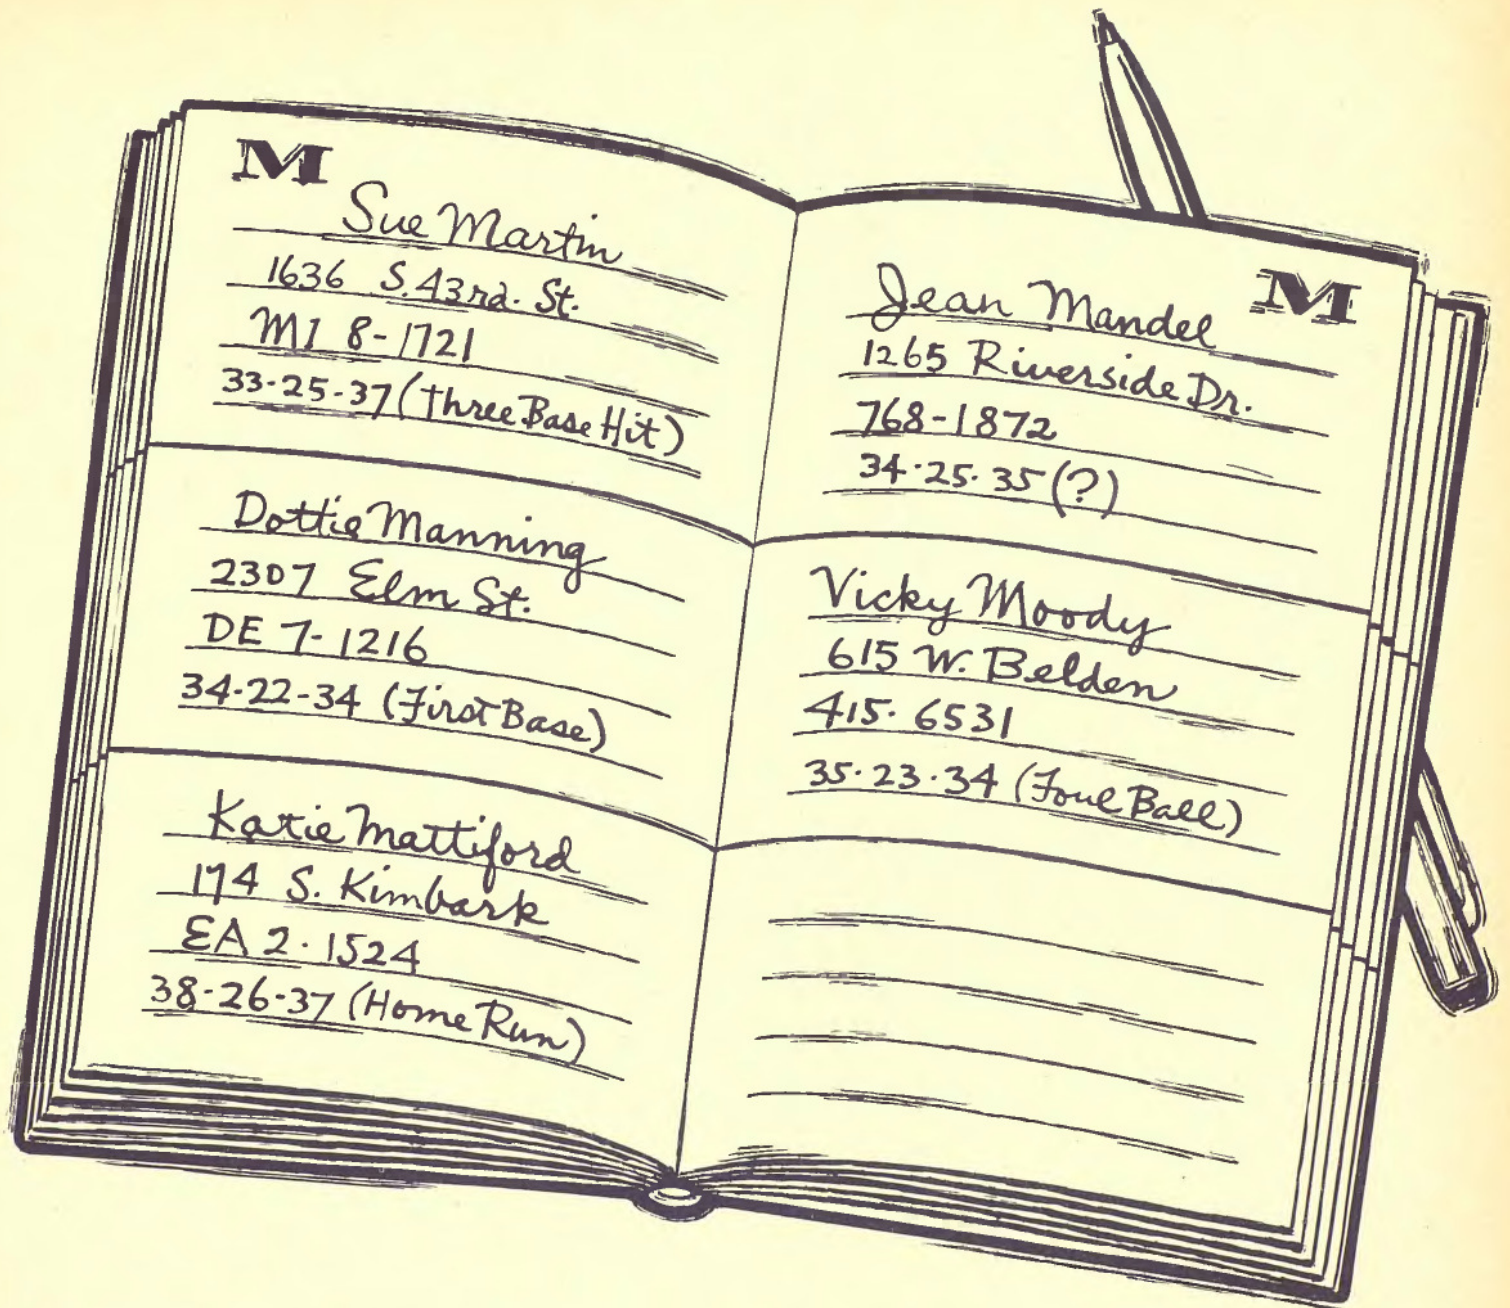 M
Sue Martin
1636 S. 43rd. St.
MI 8-1721
33-25-37 (Three Base Hit)
Dottie Manning
2307 Elm St.
DE 7-1216
34-22-34 (First Base)
Katie Mattiford
174 S. Kimbark
EA 2-1524
38-26-37 (Home Run)
M
Jean Mandel
1265 Riverside Dr.
768-1872
34-25-35 (?)
Vicky Moody
615 W. Belden
415-6531
35-23-34 (Foul Ball)